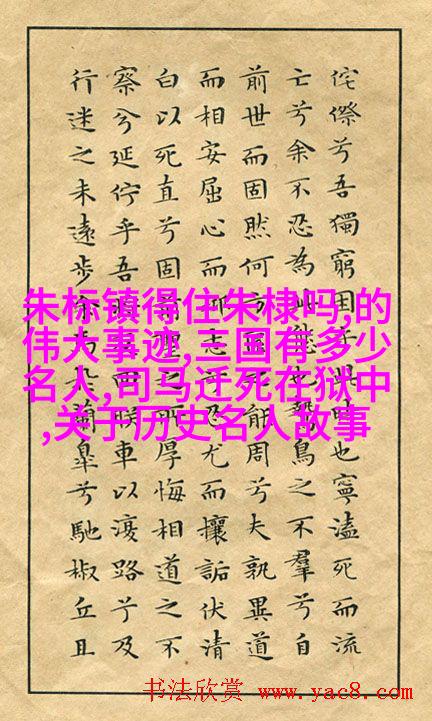 侘傺兮吾獨窮困乎此時也寧溘死而流
亡兮余不忍為此態也鷙鳥之不羣兮自
前世而固然何方圜能周兮夫孰異道
而相安屈心而抑志忍尤而攘詬伏清
白以死直兮固前之所厚悔相道之不
察兮延佇乎吾車以復路兮及
行迷之未遠步余馬於蘭臯兮馳椒丘且
朱标镇得住朱棣吗,的
伟大事迹,三国有多少
名人,司马迁死在狱中
,关于历史名人故事
书法欣赏 www.yac8.com